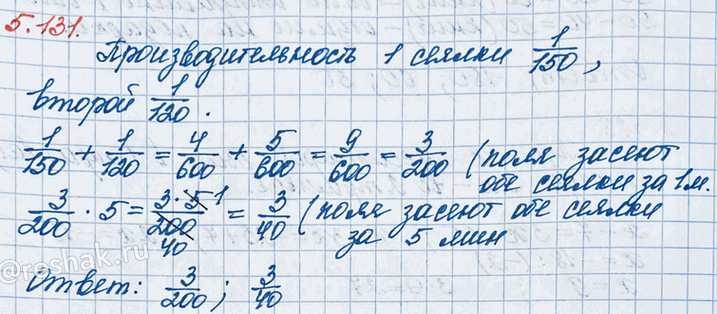 5.131.
Производительность 1 сеялки 1/150,
второй 1/120.
1/150 + 1/120 = 4/600 + 5/600 = 9/600 = 3/200 (поля засеют
обе сеялки за 1 м.
3/200 · 5 = 3·5 1/200 40 = 3/40 (поля засеют обе сеялки
за 5 мин
Ответ: 3/200; 3/40
@reshak.ru